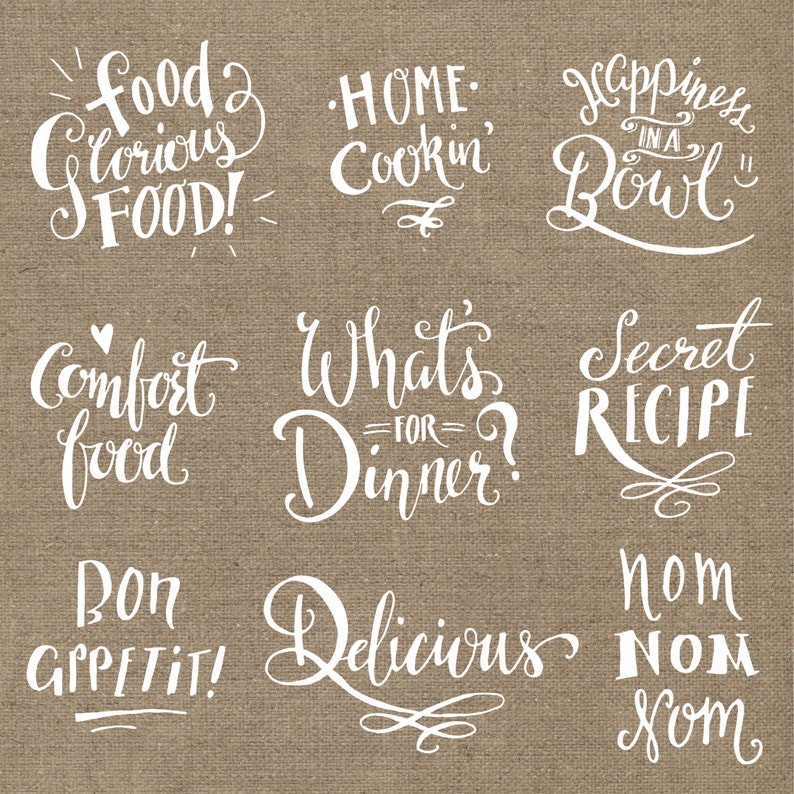 food
Glorious
FOOD!
·HOME·
Cookin'
Happiness
IN A
Bowl
Comfort
food
What's
=FOR=
Dinner?
Secret
RECIPE
Bon
APPETIT!
Delicious
nom
NOM
Nom